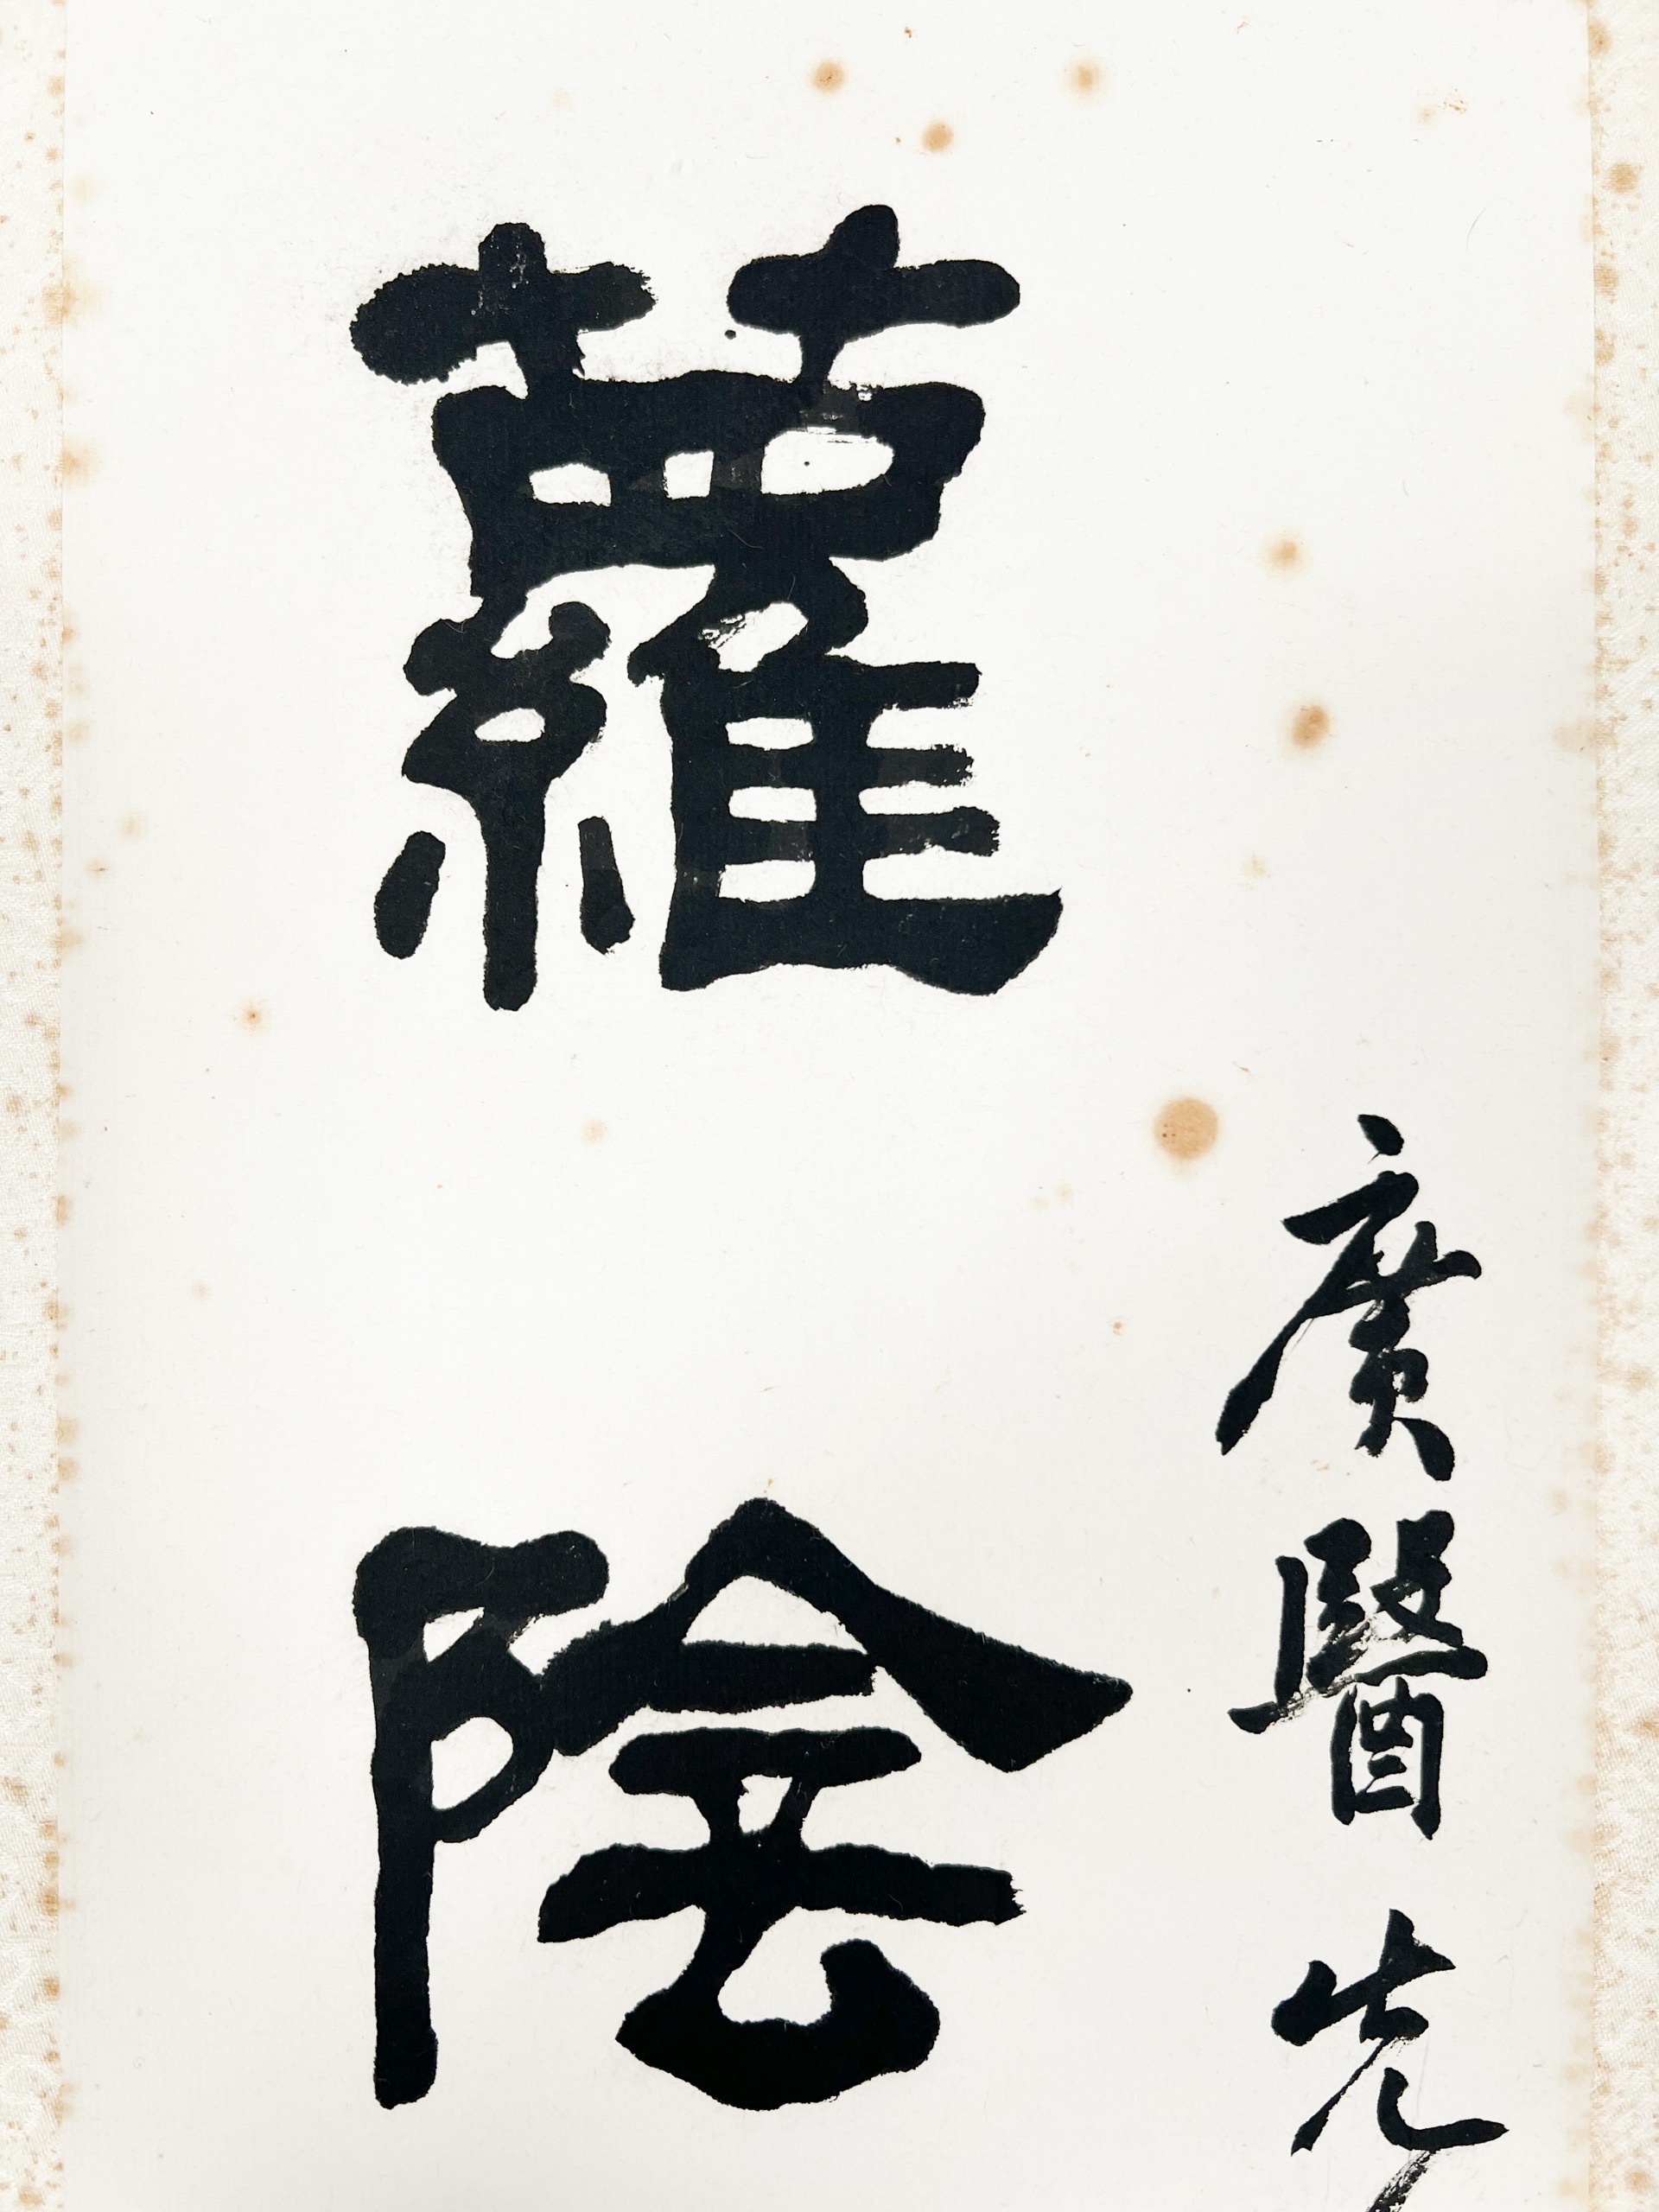 廣醫先
蘿陰